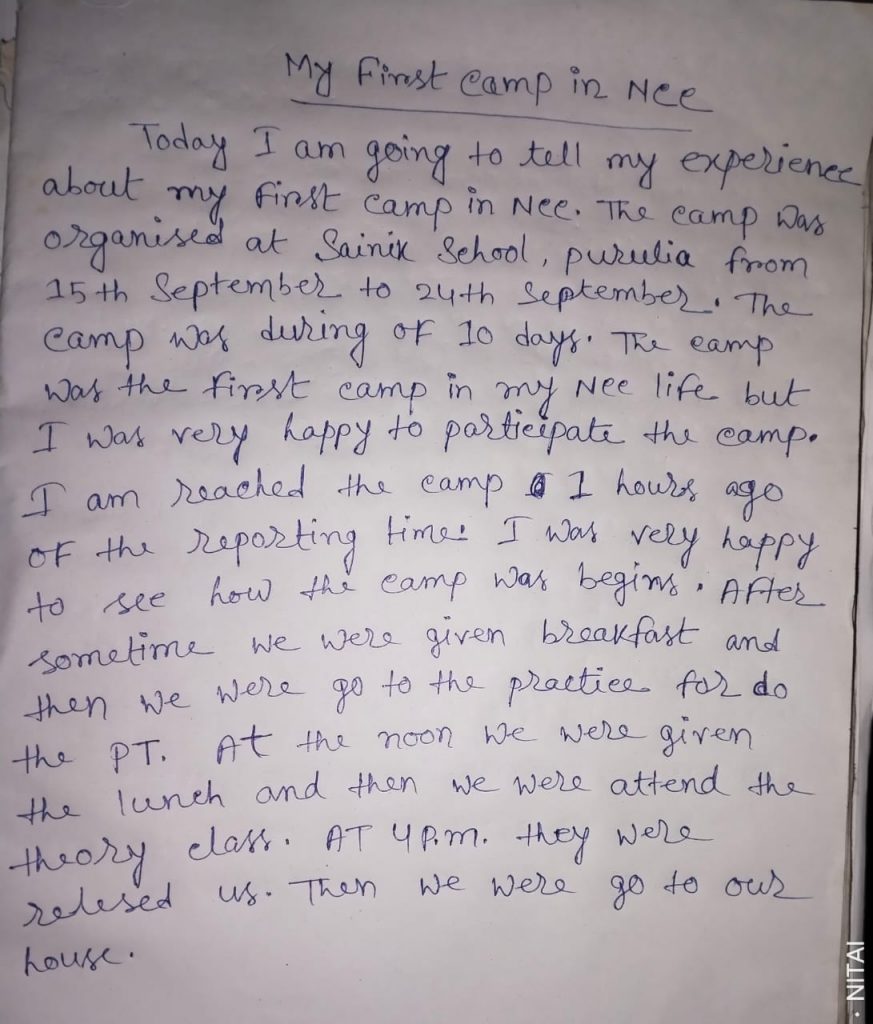 My First Camp in Ncc
Today I am going to tell my experience
about my first camp in Ncc. The camp was
organised at Sainik School, purulia from
15th September to 24th September. The
camp was during of 10 days. The camp
was the first camp in my Ncc life but
I was very happy to participate the camp.
I am reached the camp 1 hours ago
of the reporting time. I was very happy
to see how the camp was begins. After
sometime we were given breakfast and
then we were go to the practice for do
the PT. At the noon we were given
the lunch and then we were attend the
theory class. AT 4 P.m. they were
relesed us. Then we were go to our
house.
• NITAI